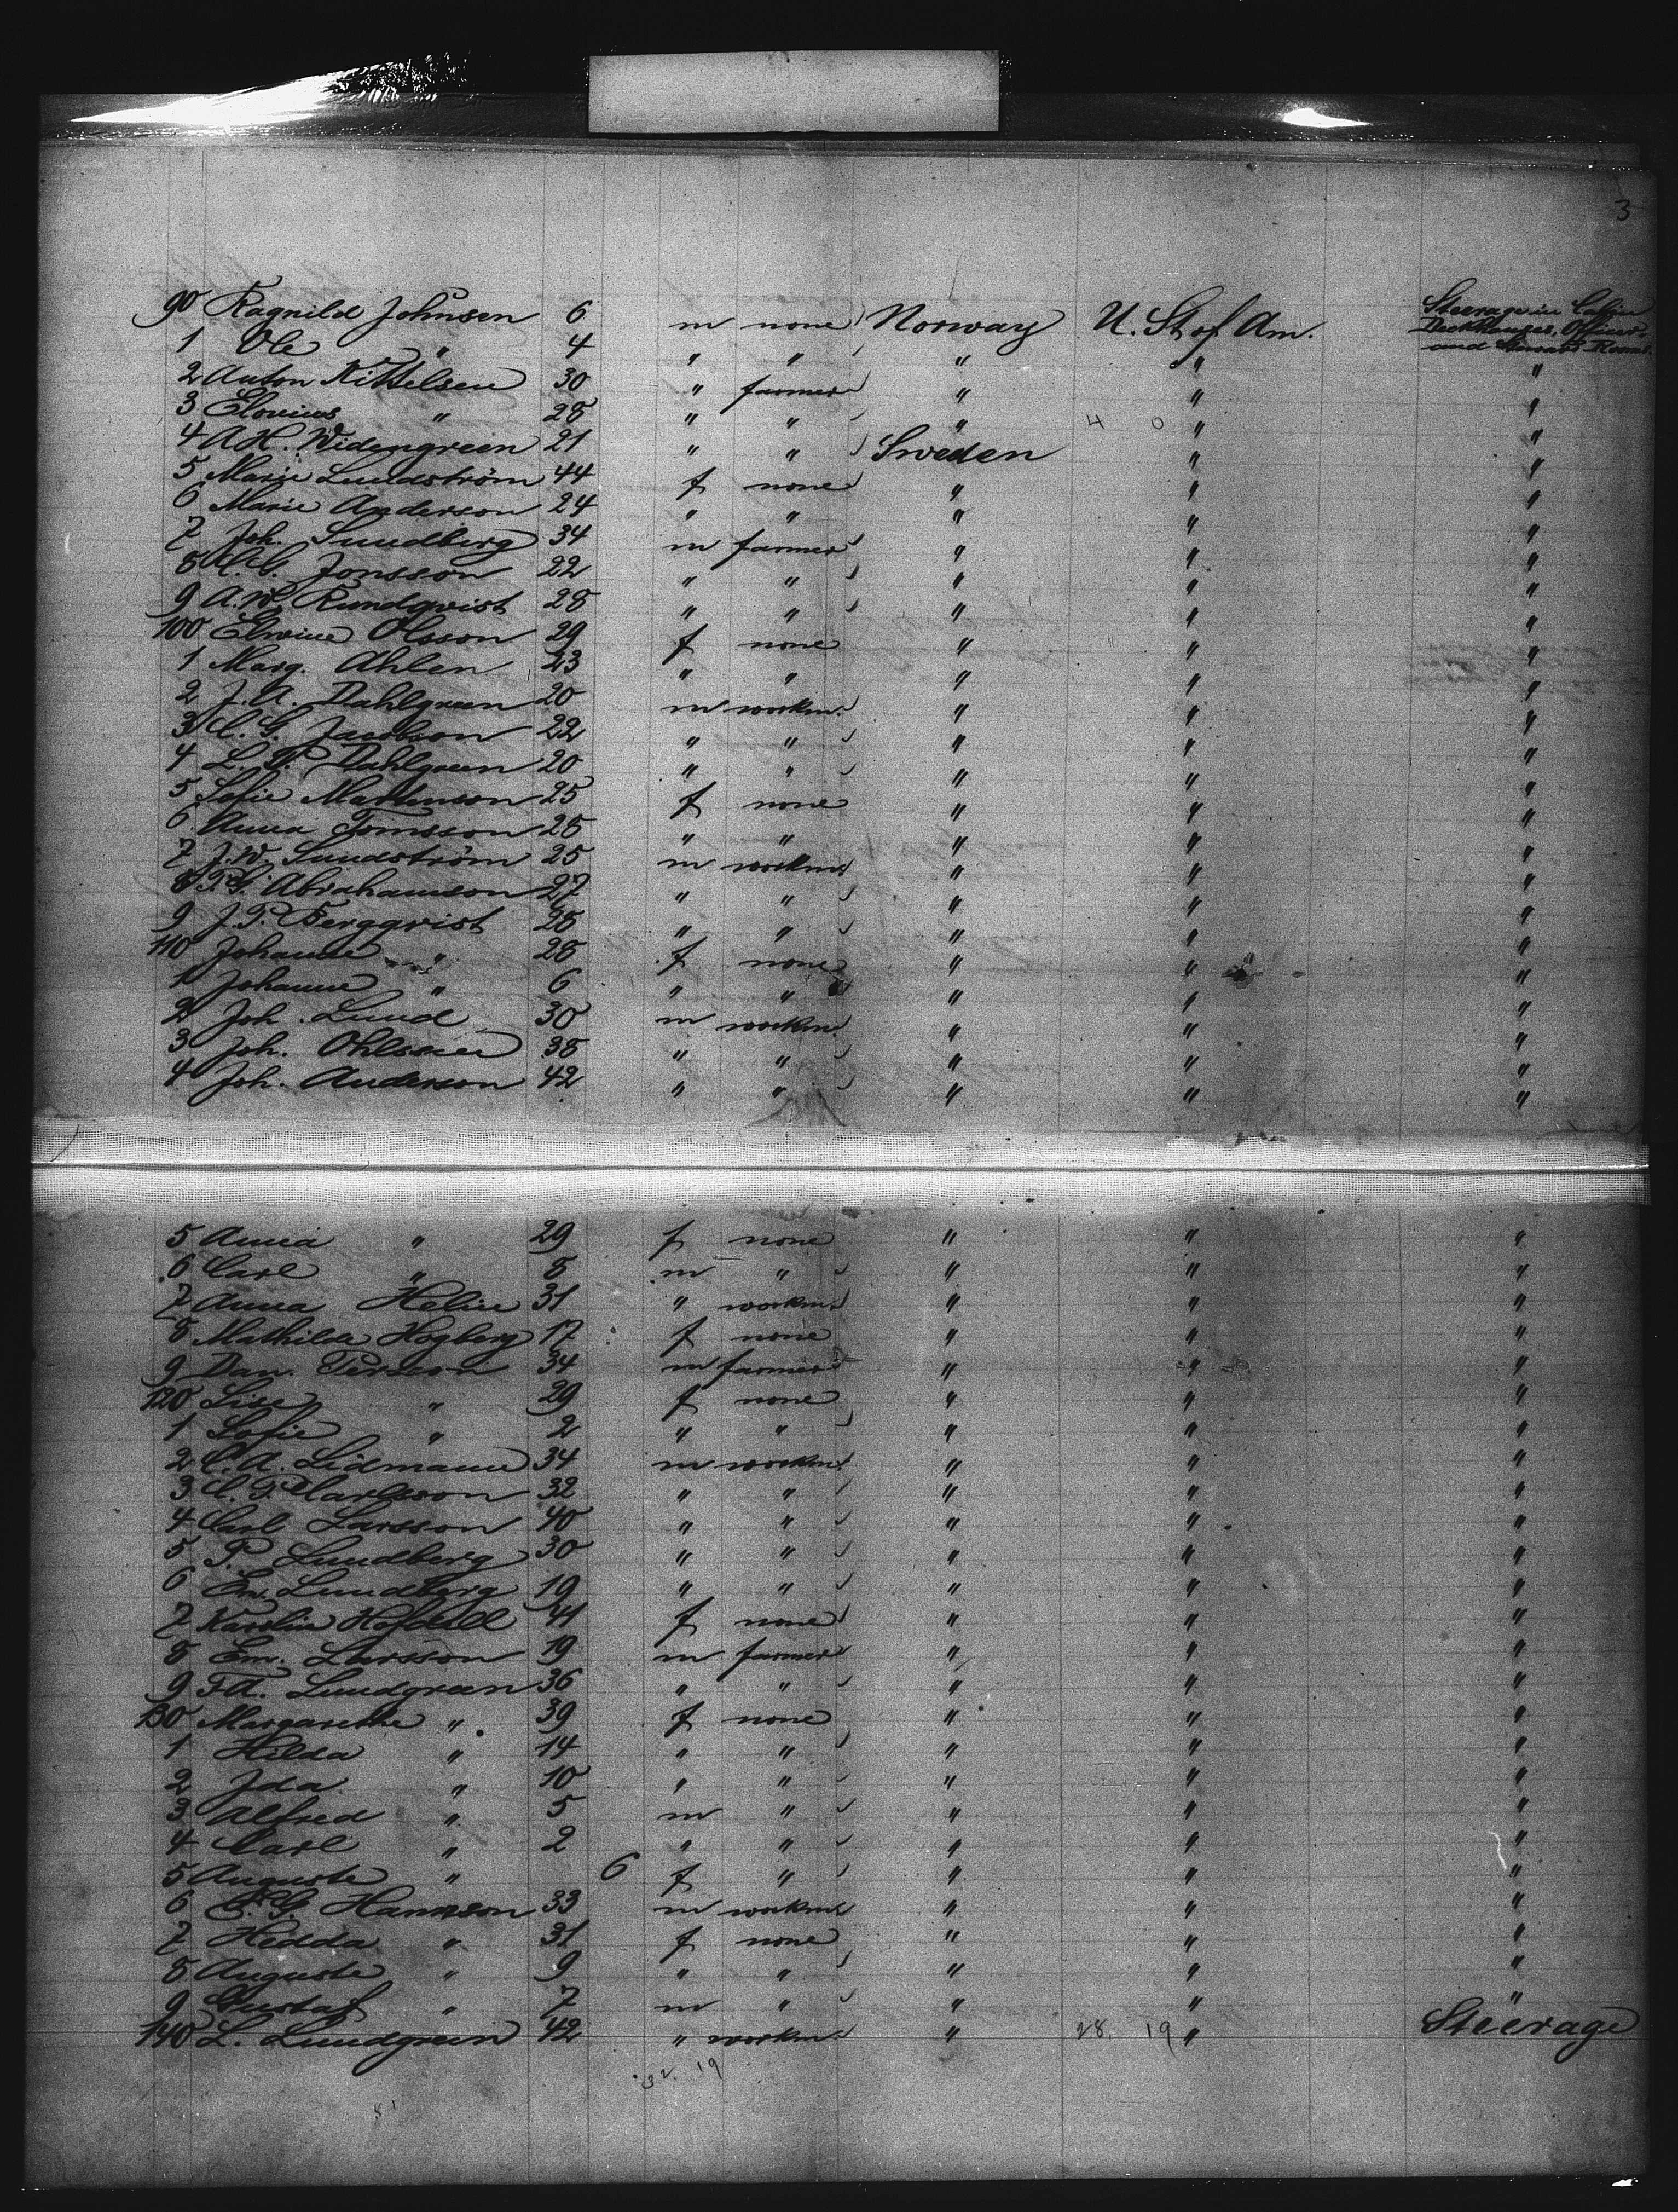 3
90 Ragnild Johnsen 6 m none Norway U. St. of Am. Steerage in Cabin
Deckhouses, Officers
and Stewards Rooms.
1 Ole " 4 " " " " "
2 Anton Kittelsen 30 " farmer " " "
3 " 28 " " " 4 0 " "
4 A.H. Widengreen 21 " " Sweden " "
5 Marie Lundström 44 f none " " "
6 Marie Anderson 24 " " " " "
7 Joh. Sundberg 34 m farmer " " "
8 C.G. Jonsson 22 " " " " "
9 A.W. Rundqvist 28 " " " " "
100 Olsson 29 f none " " "
1 Marg. Ahlen 23 " " " " "
2 J.A. Dahlgreen 20 m workm. " " "
3 C.G. Jacobson 22 " " " " "
4 L.P. Dahlgreen 20 " " " " "
5 Sofie Martenson 25 f none " " "
6 Anna Tomsson 28 " " " " "
7 J.W. Sundström 25 m workm. " " "
8 P.G. Abrahamson 27 " " " " "
9 J.P. Bergqvist 28 " " " " "
110 Johanne " 28 f none " " "
1 Johanne " 6 " " " " "
2 Joh. Lund 30 m workm. " " "
3 Joh. Ohlssen 38 " " " " "
4 Joh. Anderson 42 " " " " "
5 Anna " 29 f none " " "
6 Carl " 8 m " " " "
7 Anna Helin 31 " workm. " " "
8 Mathilde Hogberg 17 f none " " "
9 Dan. Persson 34 m farmer " " "
120 Lise " 29 f none " " "
1 Sofie " 2 " " " " "
2 C.A. Lidmann 34 m workm. " " "
3 C.P. Carlsson 32 " " " " "
4 Carl Larsson 40 " " " " "
5 P. Lundberg 30 " " " " "
6 Em. Lundberg 19 " " " " "
7 Karolin 41 f none " " "
8 Em. Larsson 19 m farmer " " "
9 F.A. Lundgreen 36 " " " " "
130 Margarethe " 39 f none " " "
1 Hilda " 14 " " " " "
2 Ida " 10 " " " " "
3 Alfred " 5 m " " " "
4 Carl " 2 " " " " "
5 Auguste " 6 f " " " "
6 C.G. Hansson 33 m workm. " " "
7 Hedda " 31 f none " " "
8 Auguste " 9 " " " " "
9 Gustaf " 7 m " " " "
140 L. Lundgreen 42 " workm. " 28. 19 " Steerage
32. 19
51